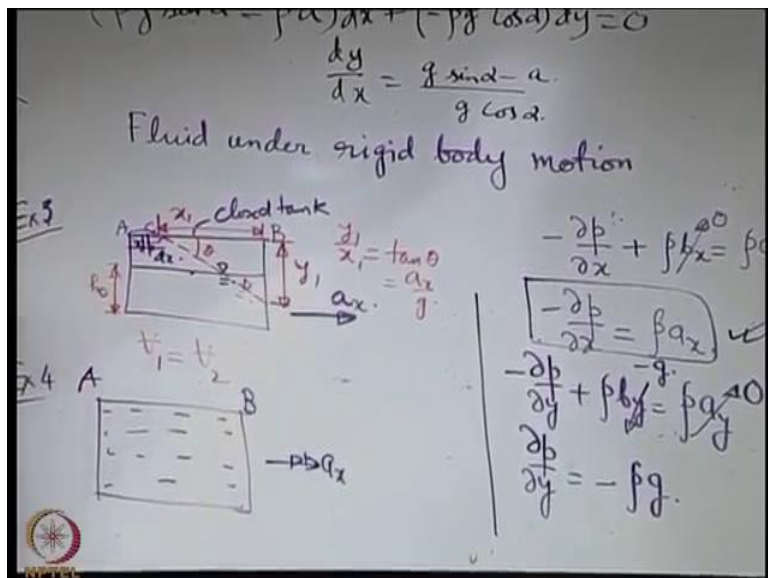 (ρg sinα - ρa)dx + (-ρg cosα)dy = 0
dy/dx = (g sinα - a)/(g cosα)
Fluid under rigid body motion
Ex3
A x₁ closed tank B
dx θ y₁
h₀
y₁/x₁ = tanθ
= aₓ/g
aₓ
∀₁ = ∀₂
Ex4 A B
aₓ
-∂p/∂x + ρbₓ = ρ
0
-∂p/∂x = ρaₓ
-∂p/∂y + ρb_y = ρa_y
-g 0
∂p/∂y = -ρg.
NPTEL